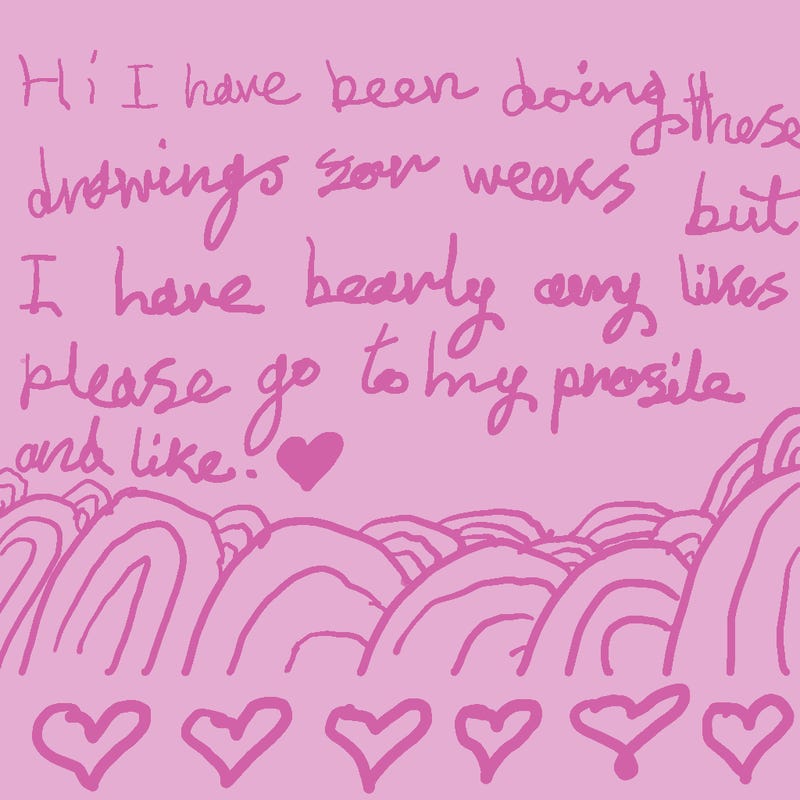 Hi I have been doing these
drawings for weeks but
I have bearly any likes
please go to my profile
and like.